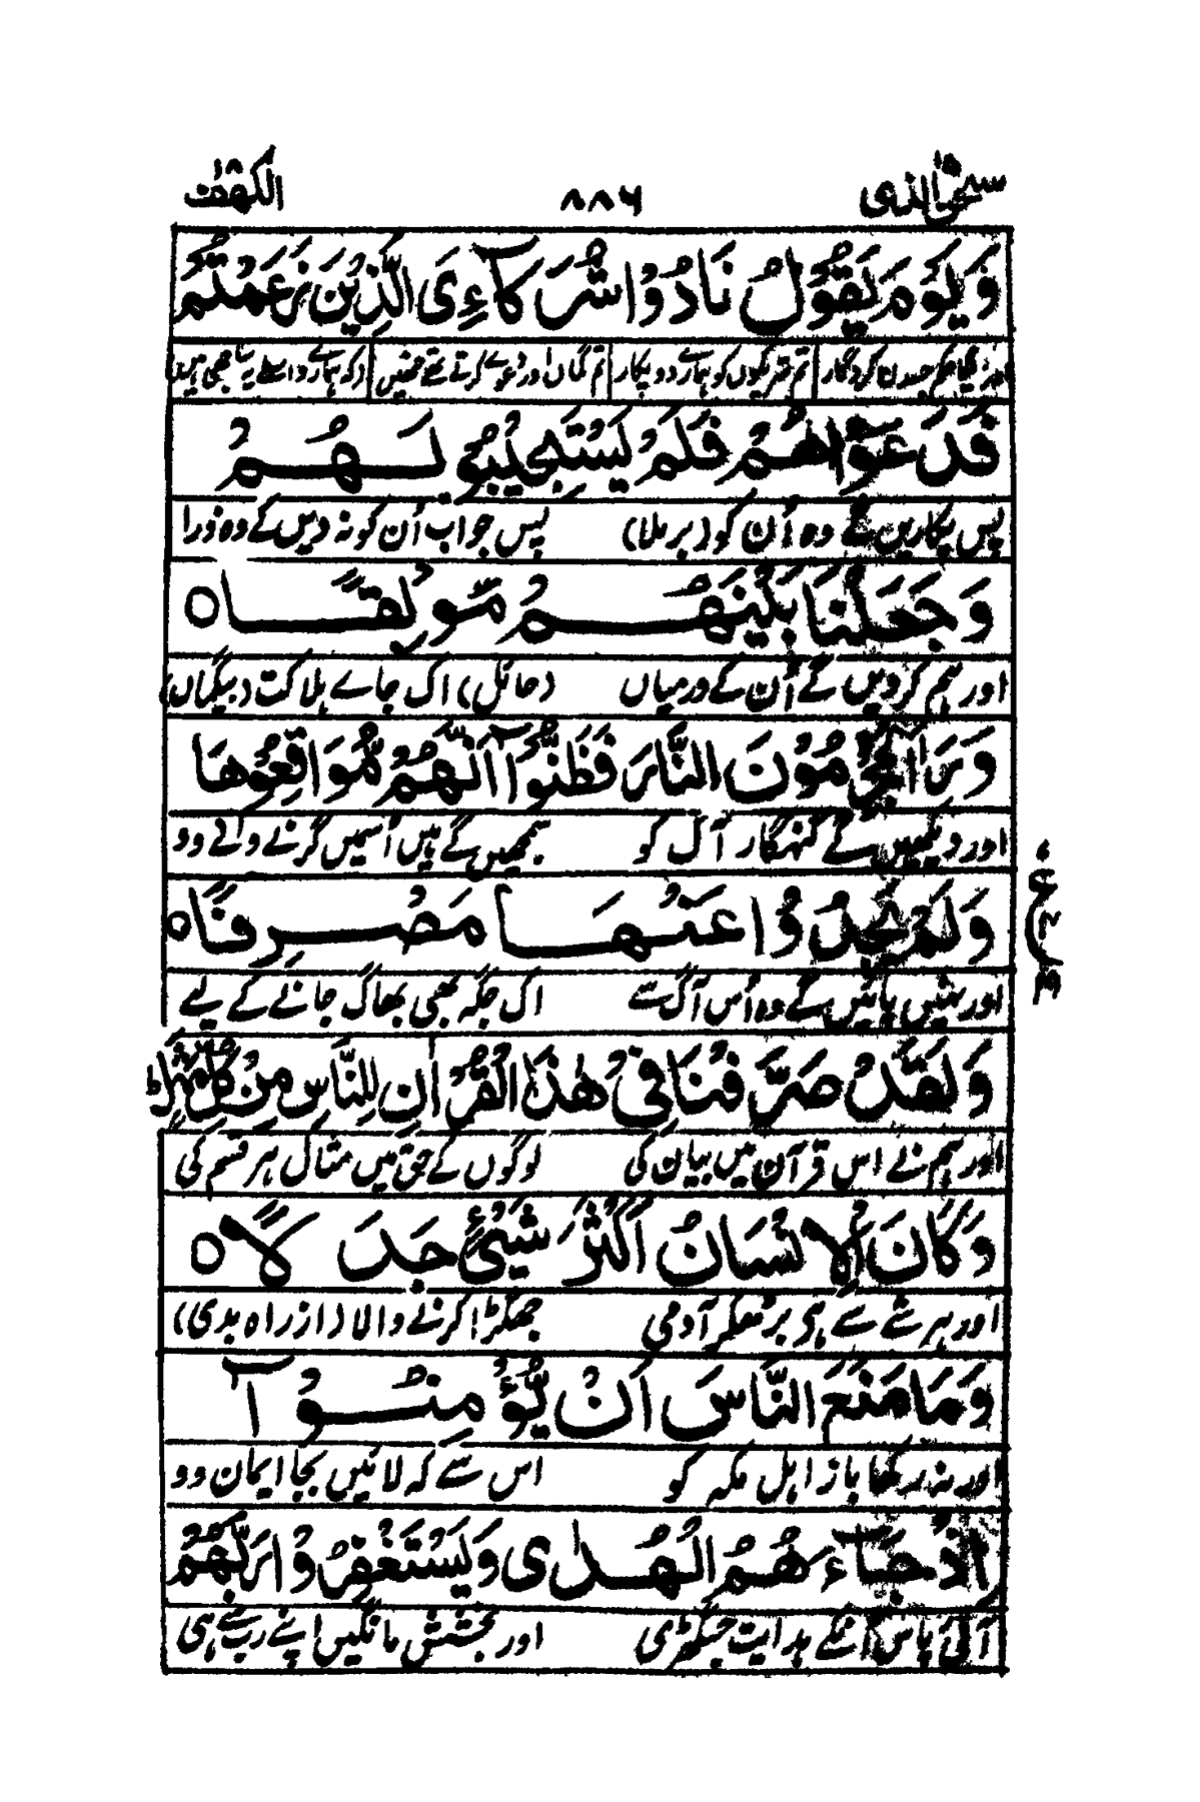 سبحن الذی ۱۵ ۸۸۶ الکھف ۱۸
وَيَوْمَ يَقُوْلُ نَادُوْا شُرَكَآءِىَ الَّذِيْنَ زَعَمْتُمْ
تم شریکوں کو ہمارے دو پکار تم گمان اور دعوے کرتے تھے جنھیں
فَدَعَوْهُمْ فَلَمْ يَسْتَجِيْبُوْا لَهُمْ
پس پکاریں گے وہ اُن کو (برملا) پس جواب اُن کو نہ دیں گے وہ ذرا
وَجَعَلْنَا بَيْنَهُمْ مَّوْبِقًا ٥
اور ہم کر دیں گے اُن کے درمیاں (حائل) اک جاے ہلاکت (بیگماں)
وَرَاَ الْمُجْرِمُوْنَ النَّارَ فَظَنُّوْٓا اَنَّهُمْ مُّوَاقِعُوْهَا
اور دیکھیں گے گنہگار آگ کو سمجھیں گے ہیں اُسمیں گرنے والے وو
وَلَمْ يَجِدُوْا عَنْهَا مَصْرِفًا ٥
اور نہیں پائیں گے وہ اُس آگ سے اک جگہ بھی بھاگ جانے کے لیے
وَلَقَدْ صَرَّفْنَا فِىْ هٰذَا الْقُرْاٰنِ لِلنَّاسِ مِنْ كُلِّ مَثَلٍ ط
اور ہم نے اس قرآن میں بیان کی لوگوں کے حق میں مثال ہر قسم کی
وَكَانَ الْاِنْسَانُ اَكْثَرَ شَىْءٍ جَدَلًا ٥
اور ہر شے سے ہی بڑھکر آدمی جھگڑا کرنے والا (از راہ بدی)
وَمَا مَنَعَ النَّاسَ اَنْ يُّؤْمِنُوْٓا
اور نہ رکھا باز اہل مکہ کو اس سے کہ لائیں بجا ایمان وو
اِذْ جَآءَهُمُ الْهُدٰى وَيَسْتَغْفِرُوْا رَبَّهُمْ
آئی پاس اُنکے ہدایت جس گھڑی اور بخشش مانگیں اپنے رب سے ہی